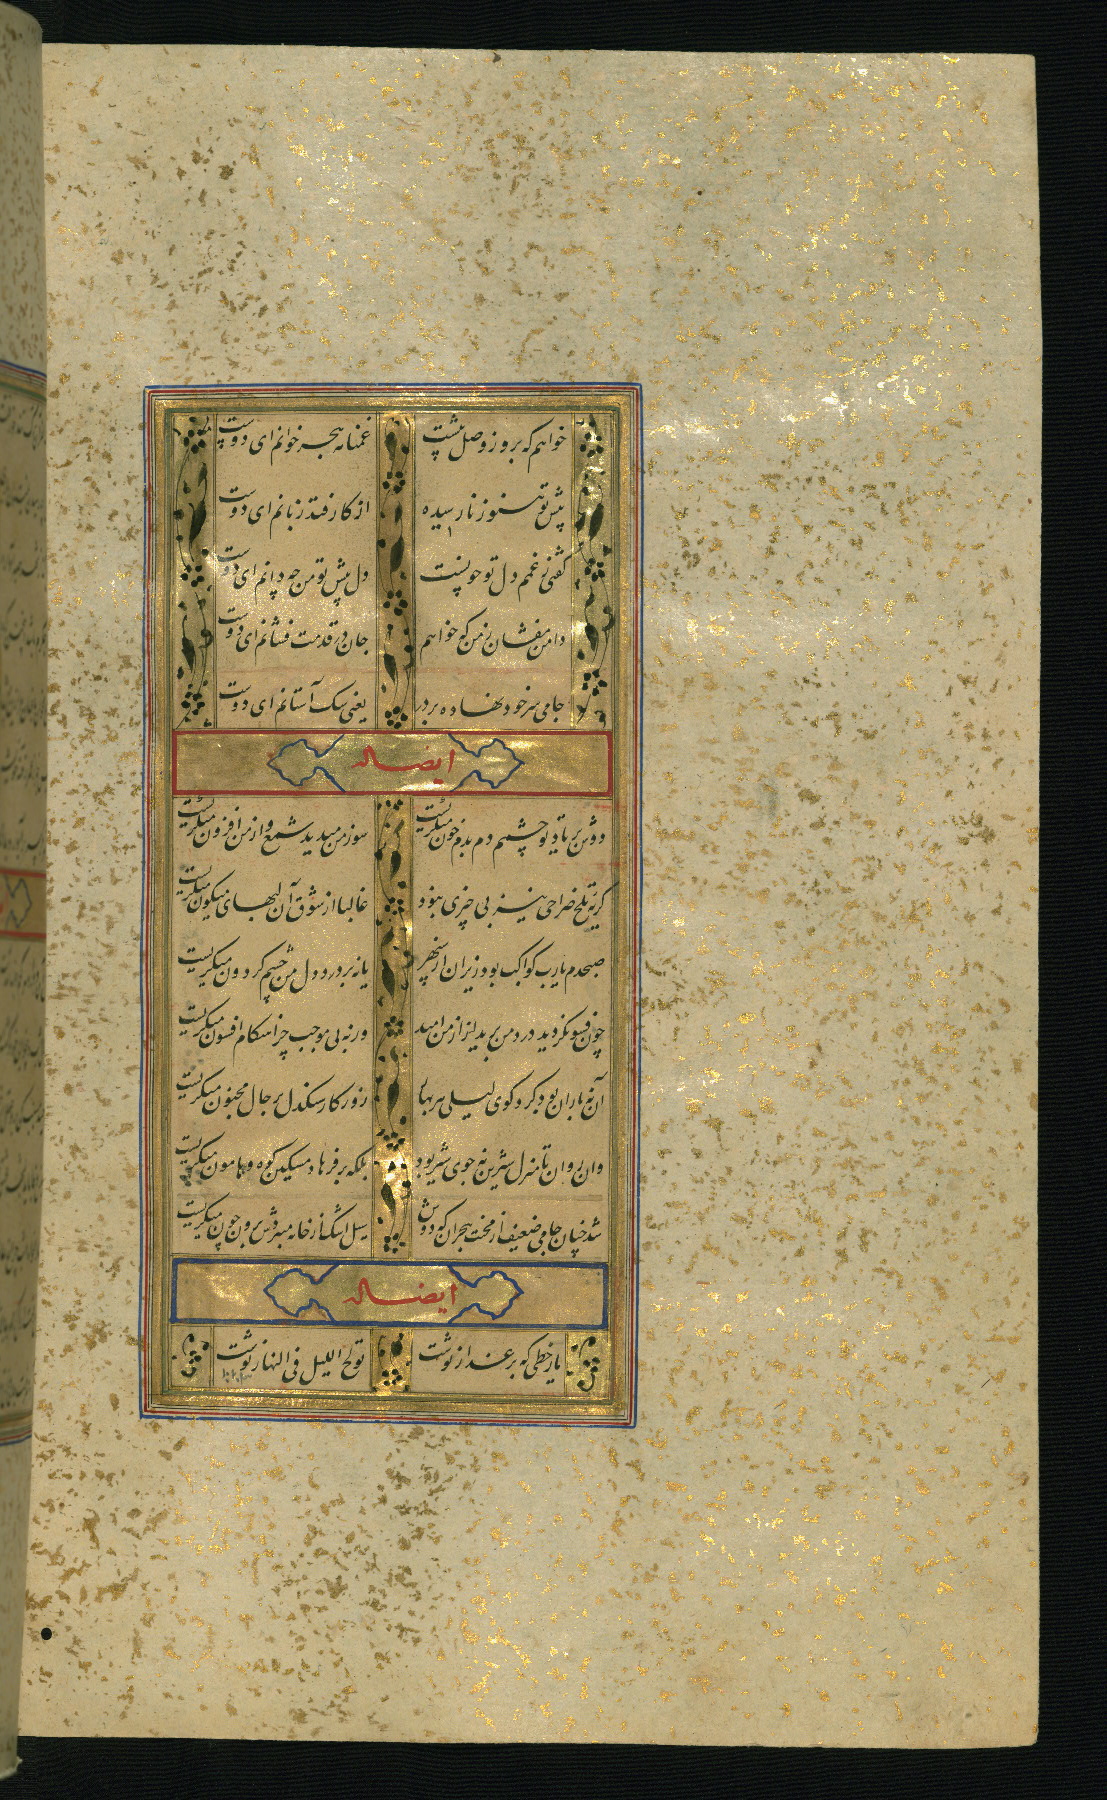 خواهم که بروز وصل پیشت غمنامهٔ هجر خوانم ای دوست
پیش تو هنوز نارسیده از کار فتد زبانم ای دوست
گفتی ز غمم دل تو چونست دل پیش تو من چه دانم ای دوست
دامن مفشان ز من که خواهم جان در قدمت فشانم ای دوست
جامی سر خود نهاده بر در یعنی سگ آستانم ای دوست
ایضا له
دوش بر یاد تو چشمم دم بدم خون میگریست سوز من میدید شمع و از من افزون میگریست
گریه تلخ صراحی نیز بی چیزی نبود غالبا از شوق آن لبهای میگون میگریست
صبحدم یارب کواکب بود ریزان از سپهر یا نه بر درد دل من چشم گردون میگریست
چون فسونگر دید درد من برید از من امید ورنه بی موجب چرا هنگام افسون میگریست
آن نه باران بود گرد کوی لیلی هر بهار روزگار سنگدل بر حال مجنون میگریست
وان روان تا منزل شیرین نه جوی شیر بود بلکه بر فرهاد مسکین کوه و هامون میگریست
شد چنان جامی ضعیف از محنت هجران که دوش سیل اشک از خانه میبردش برون چون میگریست
ایضا له
یار خطی که بر عذار نوشت تولج اللیل فی النهار نوشت